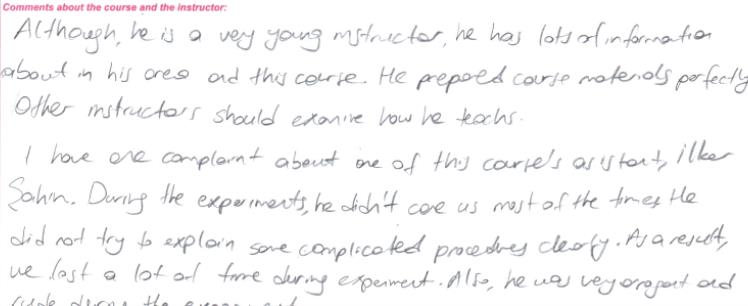 Comments about the course and the instructor:
Although, he is a very young instructor, he has lots of information
about in his area and this course. He prepared course materials perfectly
Other instructors should examine how he teachs.
I have one complaint about one of this course's asistant, ilker
Şahin. During the experiments, he didn't care us most of the times He
did not try to explain some complicated procedures clearly. As a result,
we lost a lot of time during experiment. Also, he was very arogant and
rude during the